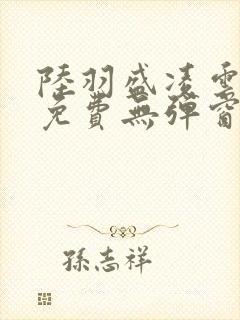 陸羽盛凌雲
免費無彈窗
孫志祥